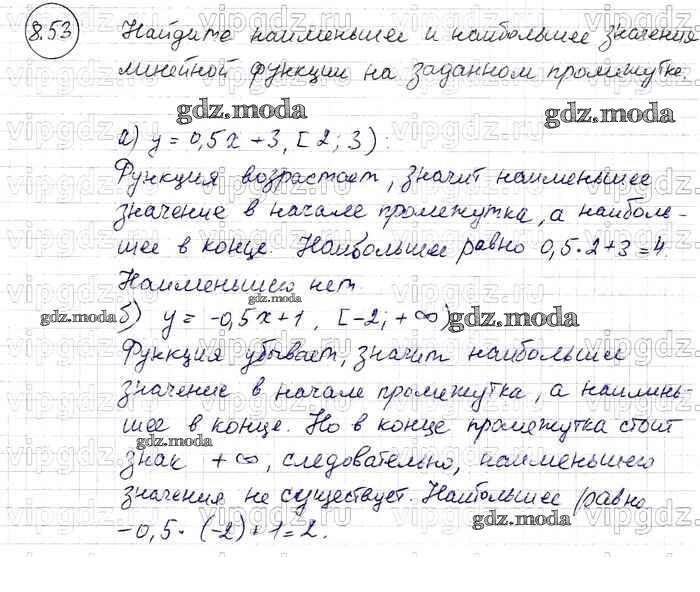 8.53 Найдите наименьшее и наибольшее значения
линейной функции на заданном промежутке.
gdz.moda gdz.moda
а) y = 0,5x + 3, [2; 3) :
Функция возрастает, значит наименьшее
значение в начале промежутка, а наиболь-
шее в конце. Наибольшее равно 0,5 · 2 + 3 = 4.
Наименьшего нет.
gdz.moda
gdz.moda б) y = -0,5x + 1, [-2; +∞) gdz.moda
Функция убывает, значит наибольшее
значение в начале промежутка, а наимень-
шее в конце. Но в конце промежутка стоит
gdz.moda
знак +∞, следовательно, наименьшего
значения не существует. Наибольшее равно
gdz.moda
-0,5 · (-2) + 1 = 2.